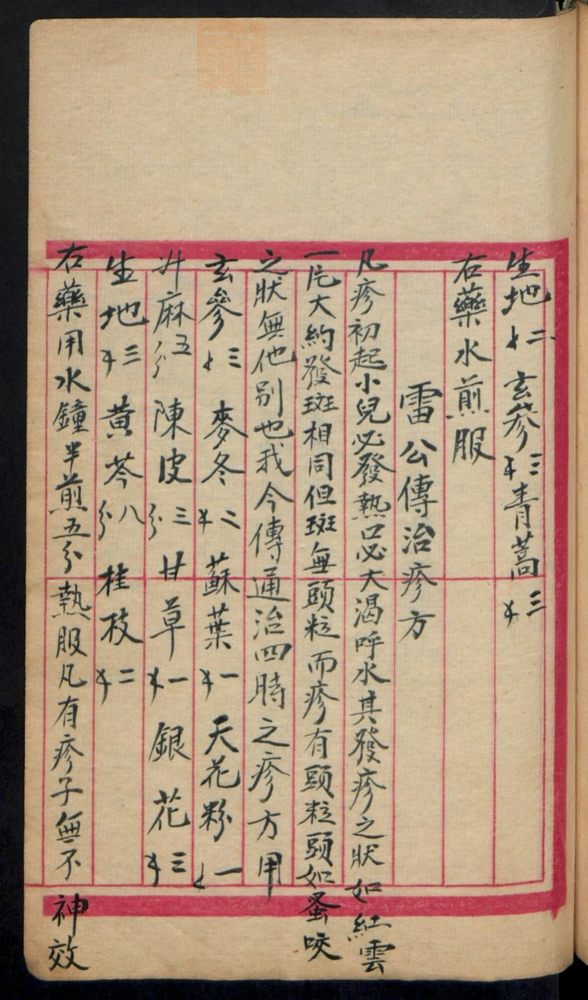 生地二 玄參三 青蒿三
右藥水煎服
雷公傳治疹方
凡疹初起小兒必發熱口必大渴呼水其發疹之狀如紅雲
一片大約發斑相同但斑無頭粒而疹有頭粒頭如蚤咬
之狀無他別也我今傳通治四時之疹方用
玄參三 麥冬二 蘇葉一 天花粉一
升麻五分 陳皮三分 甘草一 銀花三
生地三 黃芩八分 桂枝二
右藥用水鐘半煎五分熱服凡有疹子無不神效